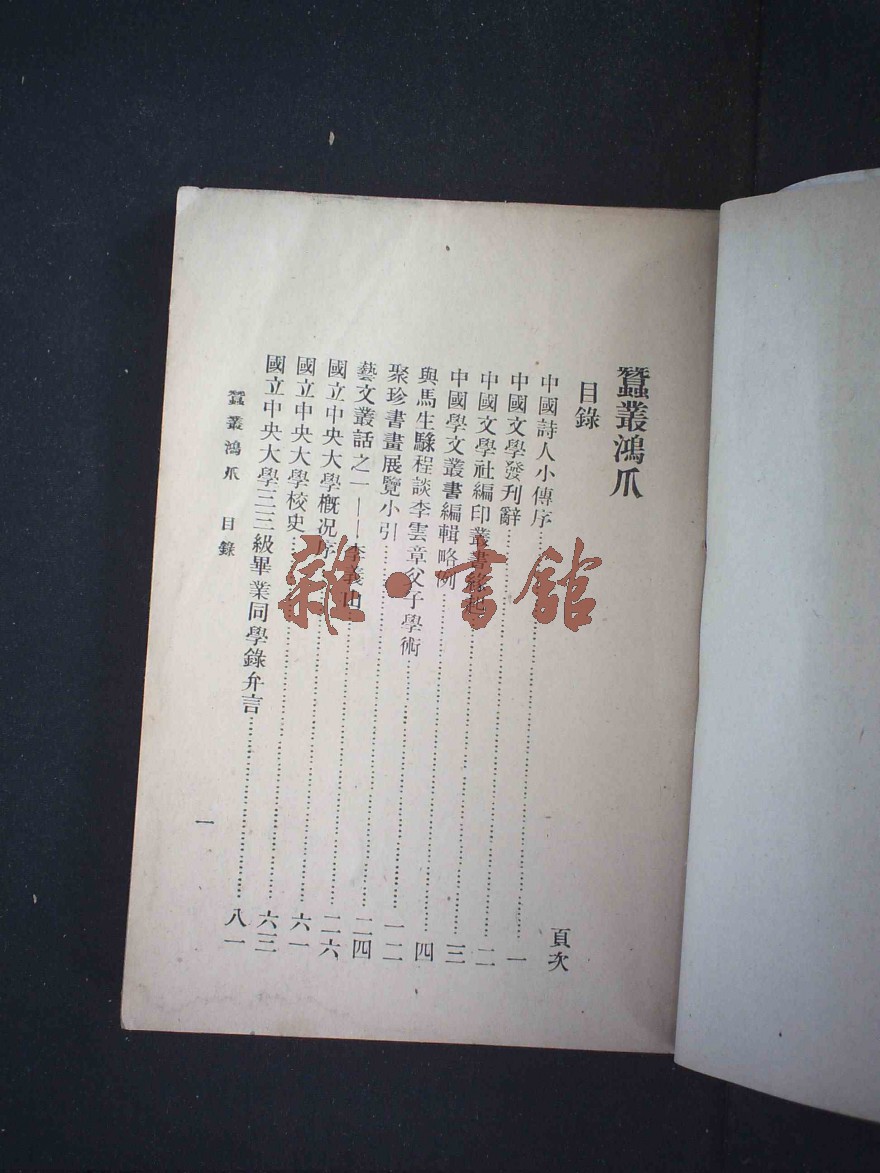 蠶叢鴻爪
目錄
頁次
中國詩人小傳序……一
中國文學發刊辭……二
中國文學社編印叢書緣起……三
中國學文叢書編輯略例……四
與馬生騄程談李雲章父子學術……一二
聚珍書畫展覽小引……二四
藝文叢話之一——李義山……二六
國立中央大學概況序……六一
國立中央大學校史……六三
國立中央大學三三級畢業同學錄弁言……八一
蠶叢鴻爪 目錄
一
雜·書館